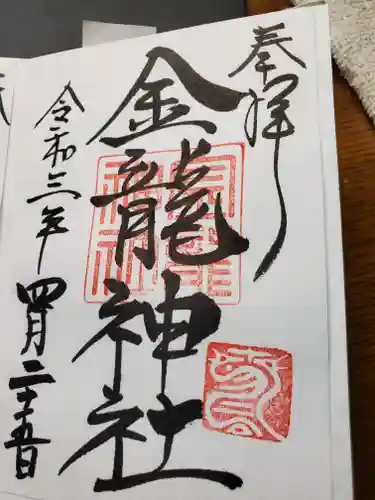 奉拝
金龍神社
令和三年
四月二十五日